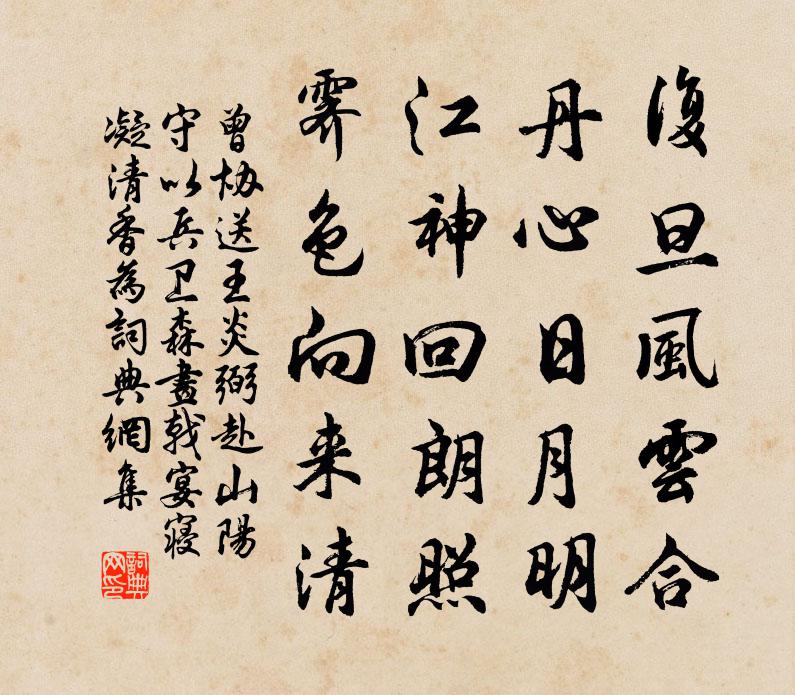 復旦風雲合
丹心日月明
江神回朗照
霽色向来清
曾协送王炎弼赴山陽
守以兵卫森畫戟宴寢
凝清香為詞典網集
詞典網印